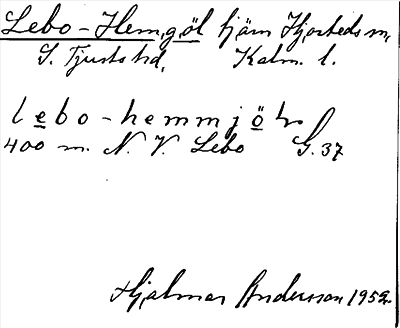 Lebo-Hemgöl tjärn Hjorteds sn,
S. Tjusts hd, Kalm. l.
lebo-hemmjö
400 m. N. V. Lebo G. 37
Hjalmar Andersson 1952